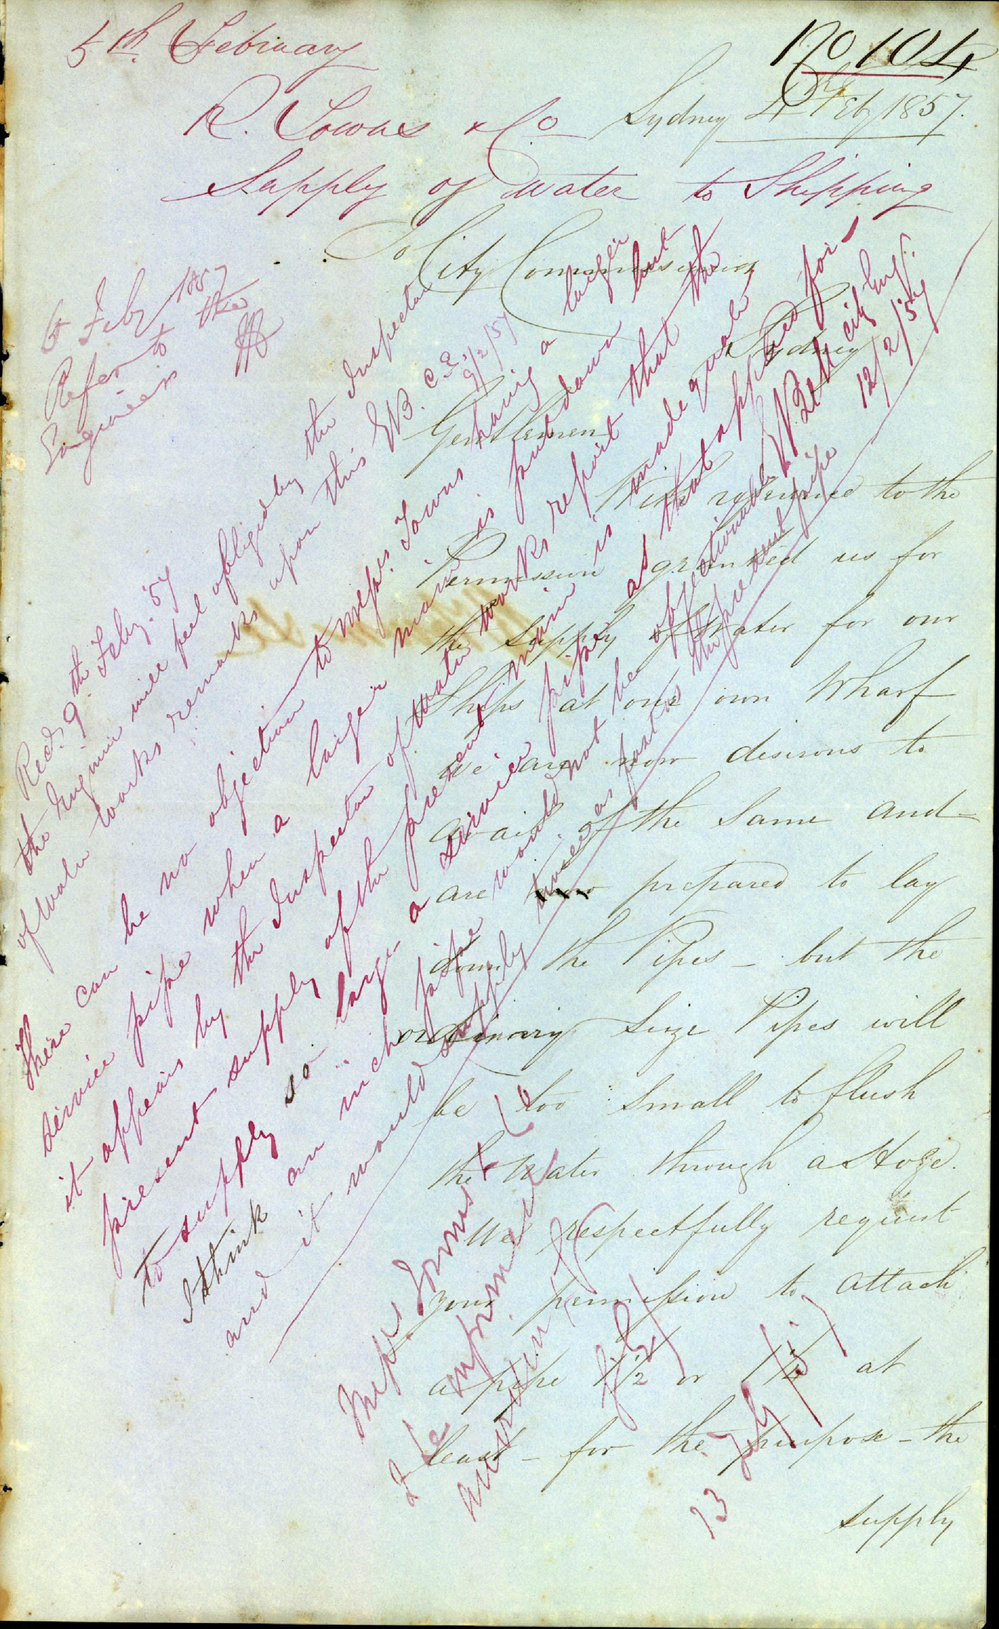 No 104
5th February
R. Towns & Co
Supply of Water to Shipping
Sydney 4th Feby 1857.
To City Commissioners
Sydney
Gentlemen
With reference to the
Permission granted us for
the supply of Water for our
Ships at our own Wharf
we are now desirous to
avail of the same and
are prepared to lay
down the Pipes – but the
ordinary Size Pipes will
be too small to flush
the Water through a Hose.
We respectfully request
your permission to attach
a pipe 1½ or 1¼ at
least – for the purpose – the
supply
6 Feby 1857
Refer to the
Engineers
Recd. 9th Feby. '57
the Engineer will feel obliged by the Inspector
of water works remarks upon this EB. C.E. 9/2/57
There can be no objection to Messrs Towns having a larger
service pipe when a larger main is put down but
it appears by the Inspector of water works report that the
present supply of the present main is inadequate
to supply so large a service pipe as that applied for –
I think an inch pipe would not be objectionable
and it would supply twice as fast as the present pipe
E Bell City Engr.
12/2/57
Messrs Towns & Co
informed
13 July 57